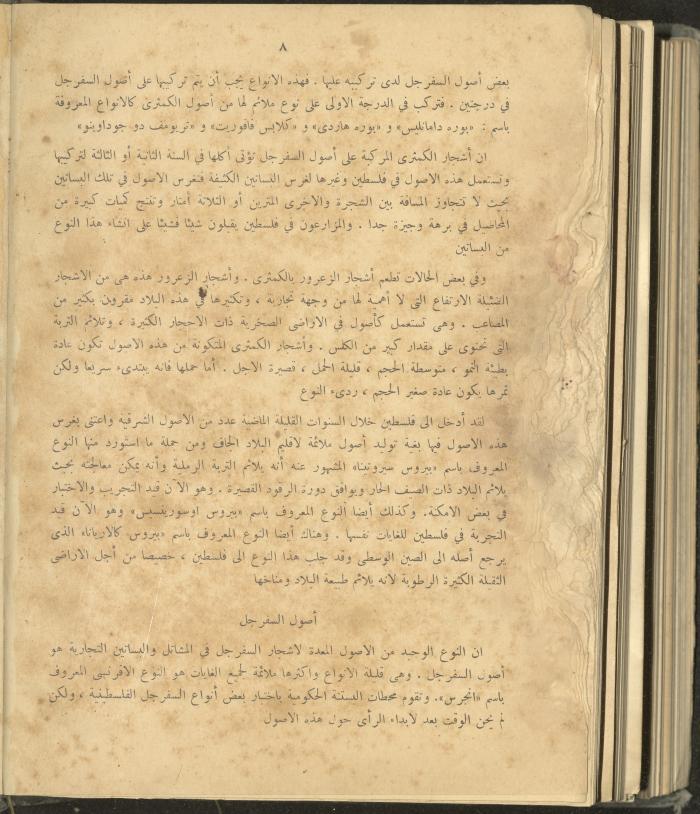 ٨
بعض أصول السفرجل لدى تركيبه عليها . فهذه الانواع يجب أن يتم تركيبها على أصول السفرجل
فى درجتين . فتركب فى الدرجة الاولى على نوع ملائم لها من أصول الكمثرى كالانواع المعروفة
باسم : «بوره دامانليس» و «بوره هاردى» و «كلابس فافوريت» و «تريومف دو جوداوينو»
ان أشجار الكمثرى المركبة على أصول السفرجل تؤتى أكلها فى السنة الثانية أو الثالثة لتركيبها
وتستعمل هذه الاصول فى فلسطين وغيرها لغرس البساتين الكثيفة فتغرس الاصول فى تلك البساتين
بحيث لا تتجاوز المسافة بين الشجرة والاخرى المترين أو الثلاثة أمتار وتنتج كميات كبيرة من
المحاصيل فى برهة وجيزة جدا . والمزارعون فى فلسطين يقبلون شيئا فشيئا على انشاء هذا النوع
من البساتين
وفى بعض الحالات تطعم أشجار الزعرور بالكمثرى . وأشجار الزعرور هذه هى من الاشجار
الضئيلة الارتفاع التى لا أهمية لها من وجهة تجارية ، وتكثيرها فى هذه البلاد مقرون بكثير من
المصاعب . وهى تستعمل كأصول فى الاراضى الصخرية ذات الاحجار الكثيرة ، وتلائم التربة
التى تحتوى على مقدار كبير من الكلس . وأشجار الكمثرى المتكونة من هذه الاصول تكون عادة
بطيئة النمو ، متوسطة الحجم ، قليلة الحمل ، قصيرة الاجل . أما حملها فانه يبتدىء سريعا ولكن
ثمرها يكون عادة صغير الحجم ، ردىء النوع
لقد أدخل الى فلسطين خلال السنوات القليلة الماضية عدد من الاصول الشرقية واعتنى بغرس
هذه الاصول فيها بغية توليد أصول ملائمة لاقليم البلاد الجاف ومن جملة ما استورد منها النوع
المعروف باسم «بيروس سيروتينا» المشهور عنه أنه يلائم التربة الرملية وأنه يمكن معالجته بحيث
يلائم البلاد ذات الصيف الحار ويوافق دورة الرقود القصيرة . وهو الآن قيد التجريب والاختبار
فى بعض الامكنة. وكذلك أيضا النوع المعروف باسم «بيروس اوسورينسيس» وهو الآن قيد
التجربة فى فلسطين للغايات نفسها . وهناك أيضا النوع المعروف باسم «بيروس كالاريانا» الذى
يرجع أصله الى الصين الوسطى وقد جلب هذا النوع الى فلسطين ، خصيصا من أجل الاراضى
الثقيلة الكثيرة الرطوبة لانه يلائم طبيعة البلاد ومناخها
أصول السفرجل
ان النوع الوحيد من الاصول المعدة لاشجار السفرجل فى المشاتل والبساتين التجارية هو
أصول السفرجل . وهى قليلة الانواع واكثرها ملائمة لجميع الغايات هو النوع الافرنسى المعروف
باسم «انجرس». وتقوم محطات البستنة الحكومية باختبار بعض أنواع السفرجل الفلسطينية ، ولكن
لم يحن الوقت بعد لابداء الرأى حول هذه الاصول